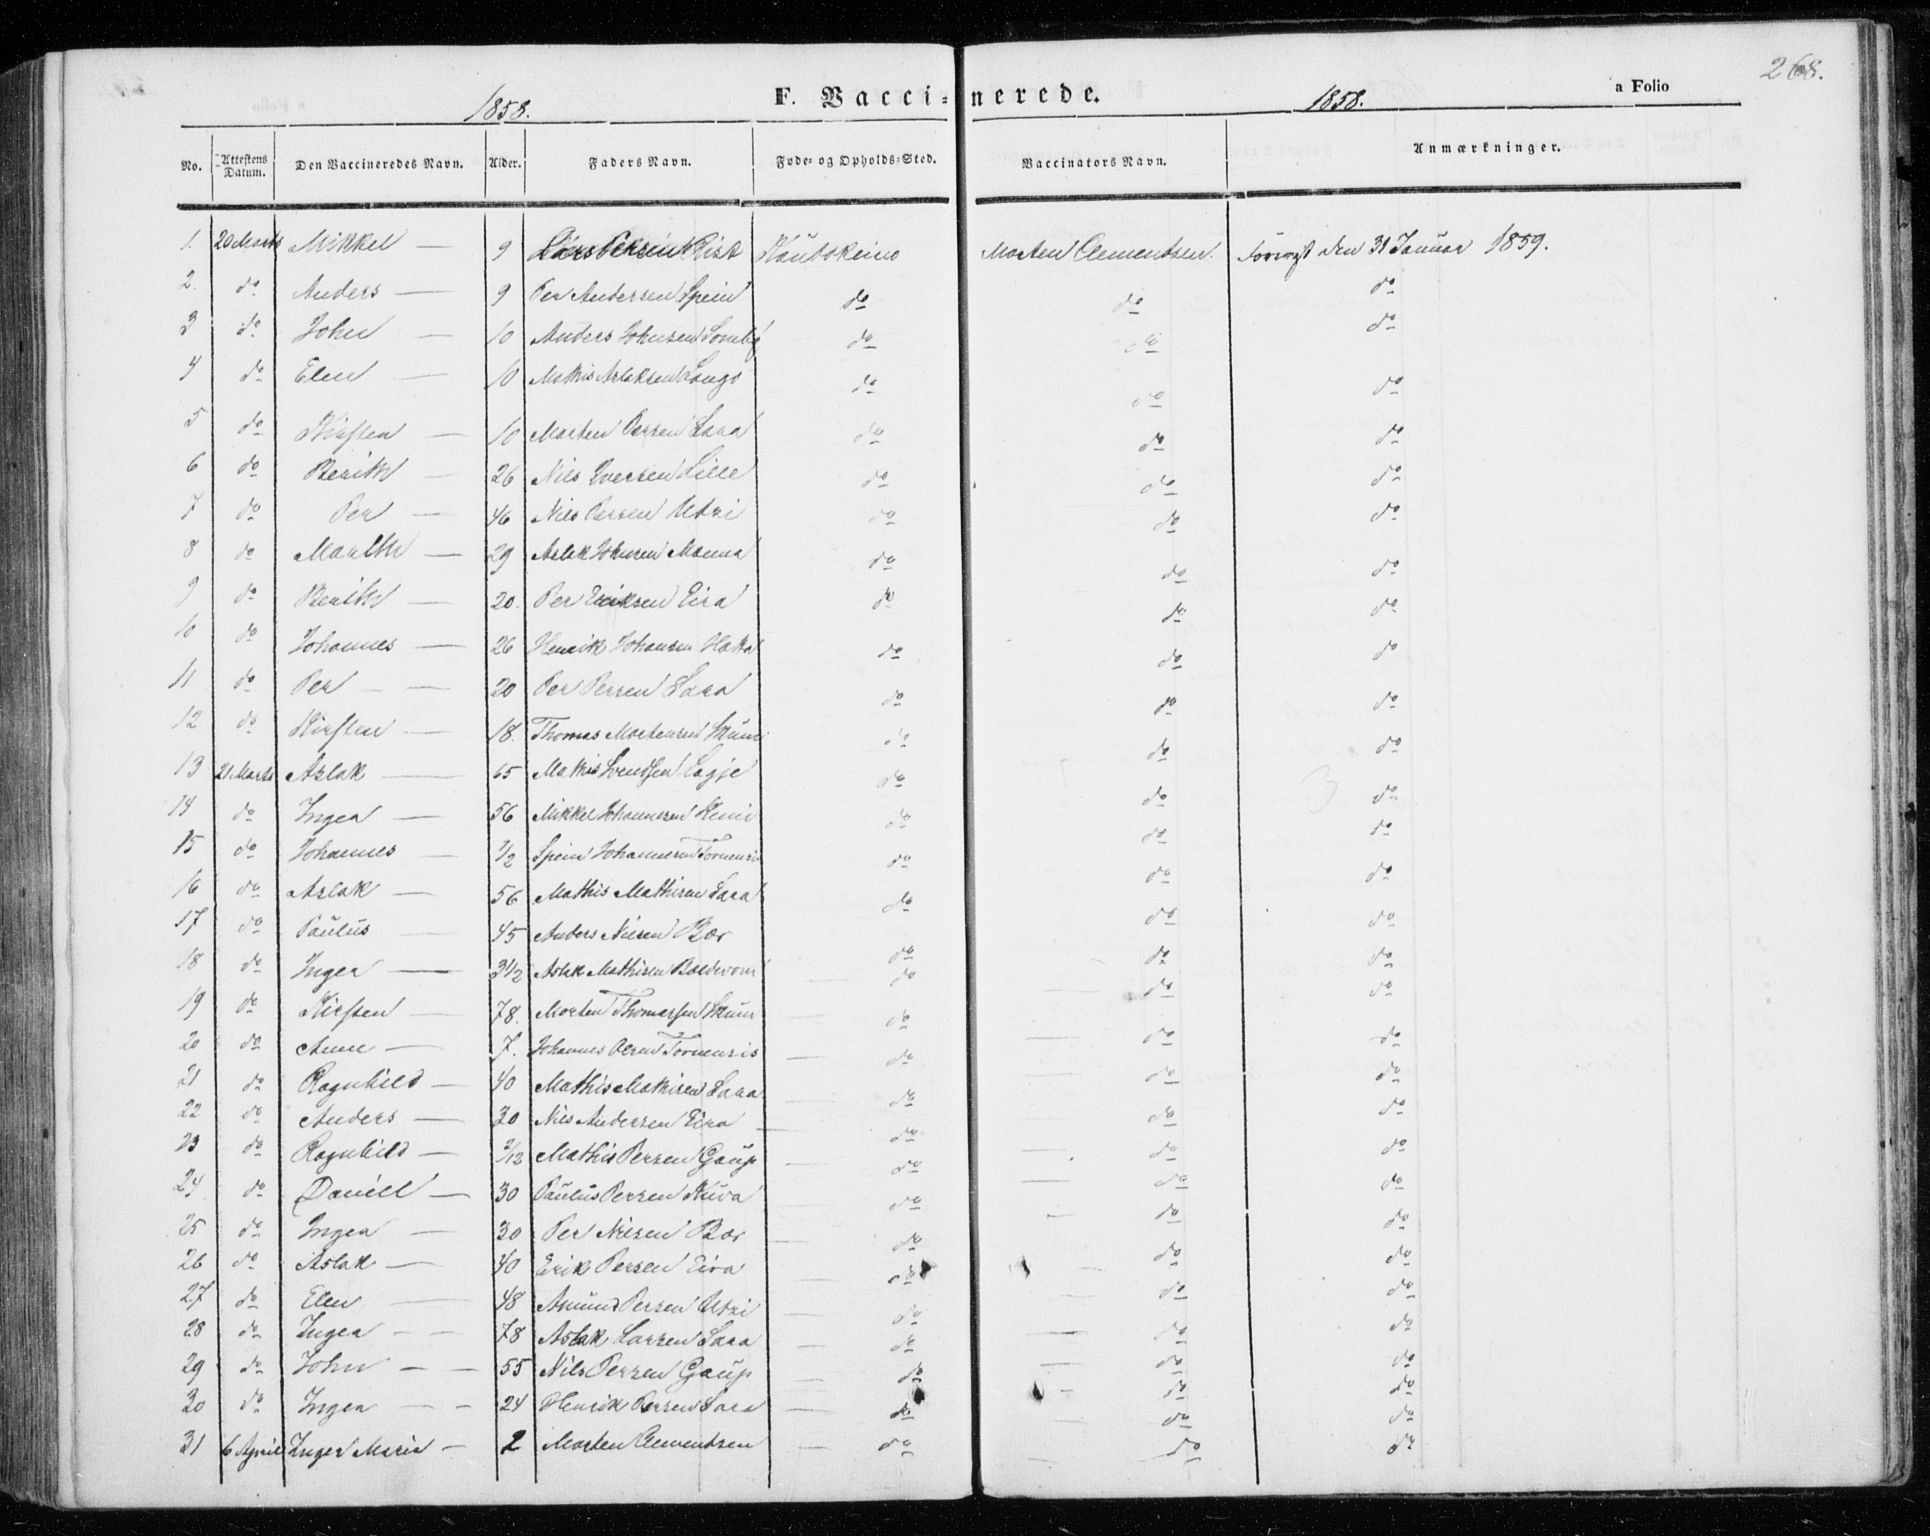 268.
1858. F. Vacci-nerede. 1858. a Folio
No. Attestens Datum. Den Vaccineredes Navn. Alder. Faders Navn. Føde- og Opholds-Sted. Vaccinators Navn. Anmærkninger.
1. 20 Marts Mikkel — 9 Kautokeino Morten Clementsen. den 31 Januar 1859.
2. do Anders — 9 Per Andersen Spein do do do
3 do John — 10 Anders Johnsen do do do
4 do Elen — 10 Mathis Aslaksen do do do
5 do Kirsten — 10 Morten Persen Sara do do do
6 do Berith 26 Nils Iversen do do do
7 do Per — 46 Nils Persen Utzi do do do
8 do Marith — 29 Aslak Johnsen do do do
9 do Berith — 20. Per Eriksen Eira do do do
10 do Johannes — 26 Henrik Johansen do do do
11 do Per — 20 Per Persen Sara do do do
12 do Kirsten — 18. Thomas Mortensen do do do
13 21 Marts Aslak — 65 Mathis Svendsen do do do
14 do Inger — 56 Mikkel Johannesen do do do
15 do Johannes — 1/2 Spein Johannesen do do do
16 do Aslak — 56 Mathis Mathisen Sara do do do
17 do Paulus — 45 Anders Nilsen Bær do do do
18 do Inger — 3 1/2 Aslak Mathisen do do do
19 do Kirsten — 78. Morten Thomassen do do do
20 do Anne — 7. Johannes Olsen Tornensis do do do
21 do Ragnhild — 40 Mathis Mathisen Sara do do do
22 do Anders — 30 Nils Andersen Eira do do do
23 do Ragnhild — /12 Mathis Persen Gaup do do do
24 do Daniel — 30 Paulus Persen do do do
25 do Inger — 30 Per Nilsen Bær do do do
26 do Aslak — 40 Erik Persen Eira do do do
27 do Elen — 48 Amund Persen Utzi do do do
28 do Inger — 78 Aslak Larsen Sara do do do
29 do John — 55 Nils Persen Gaup do do do
30 do Inger — 24 Henrik Persen Sara do do do
31 6 April Inger Marie — 2 Morten Clementsen do do do